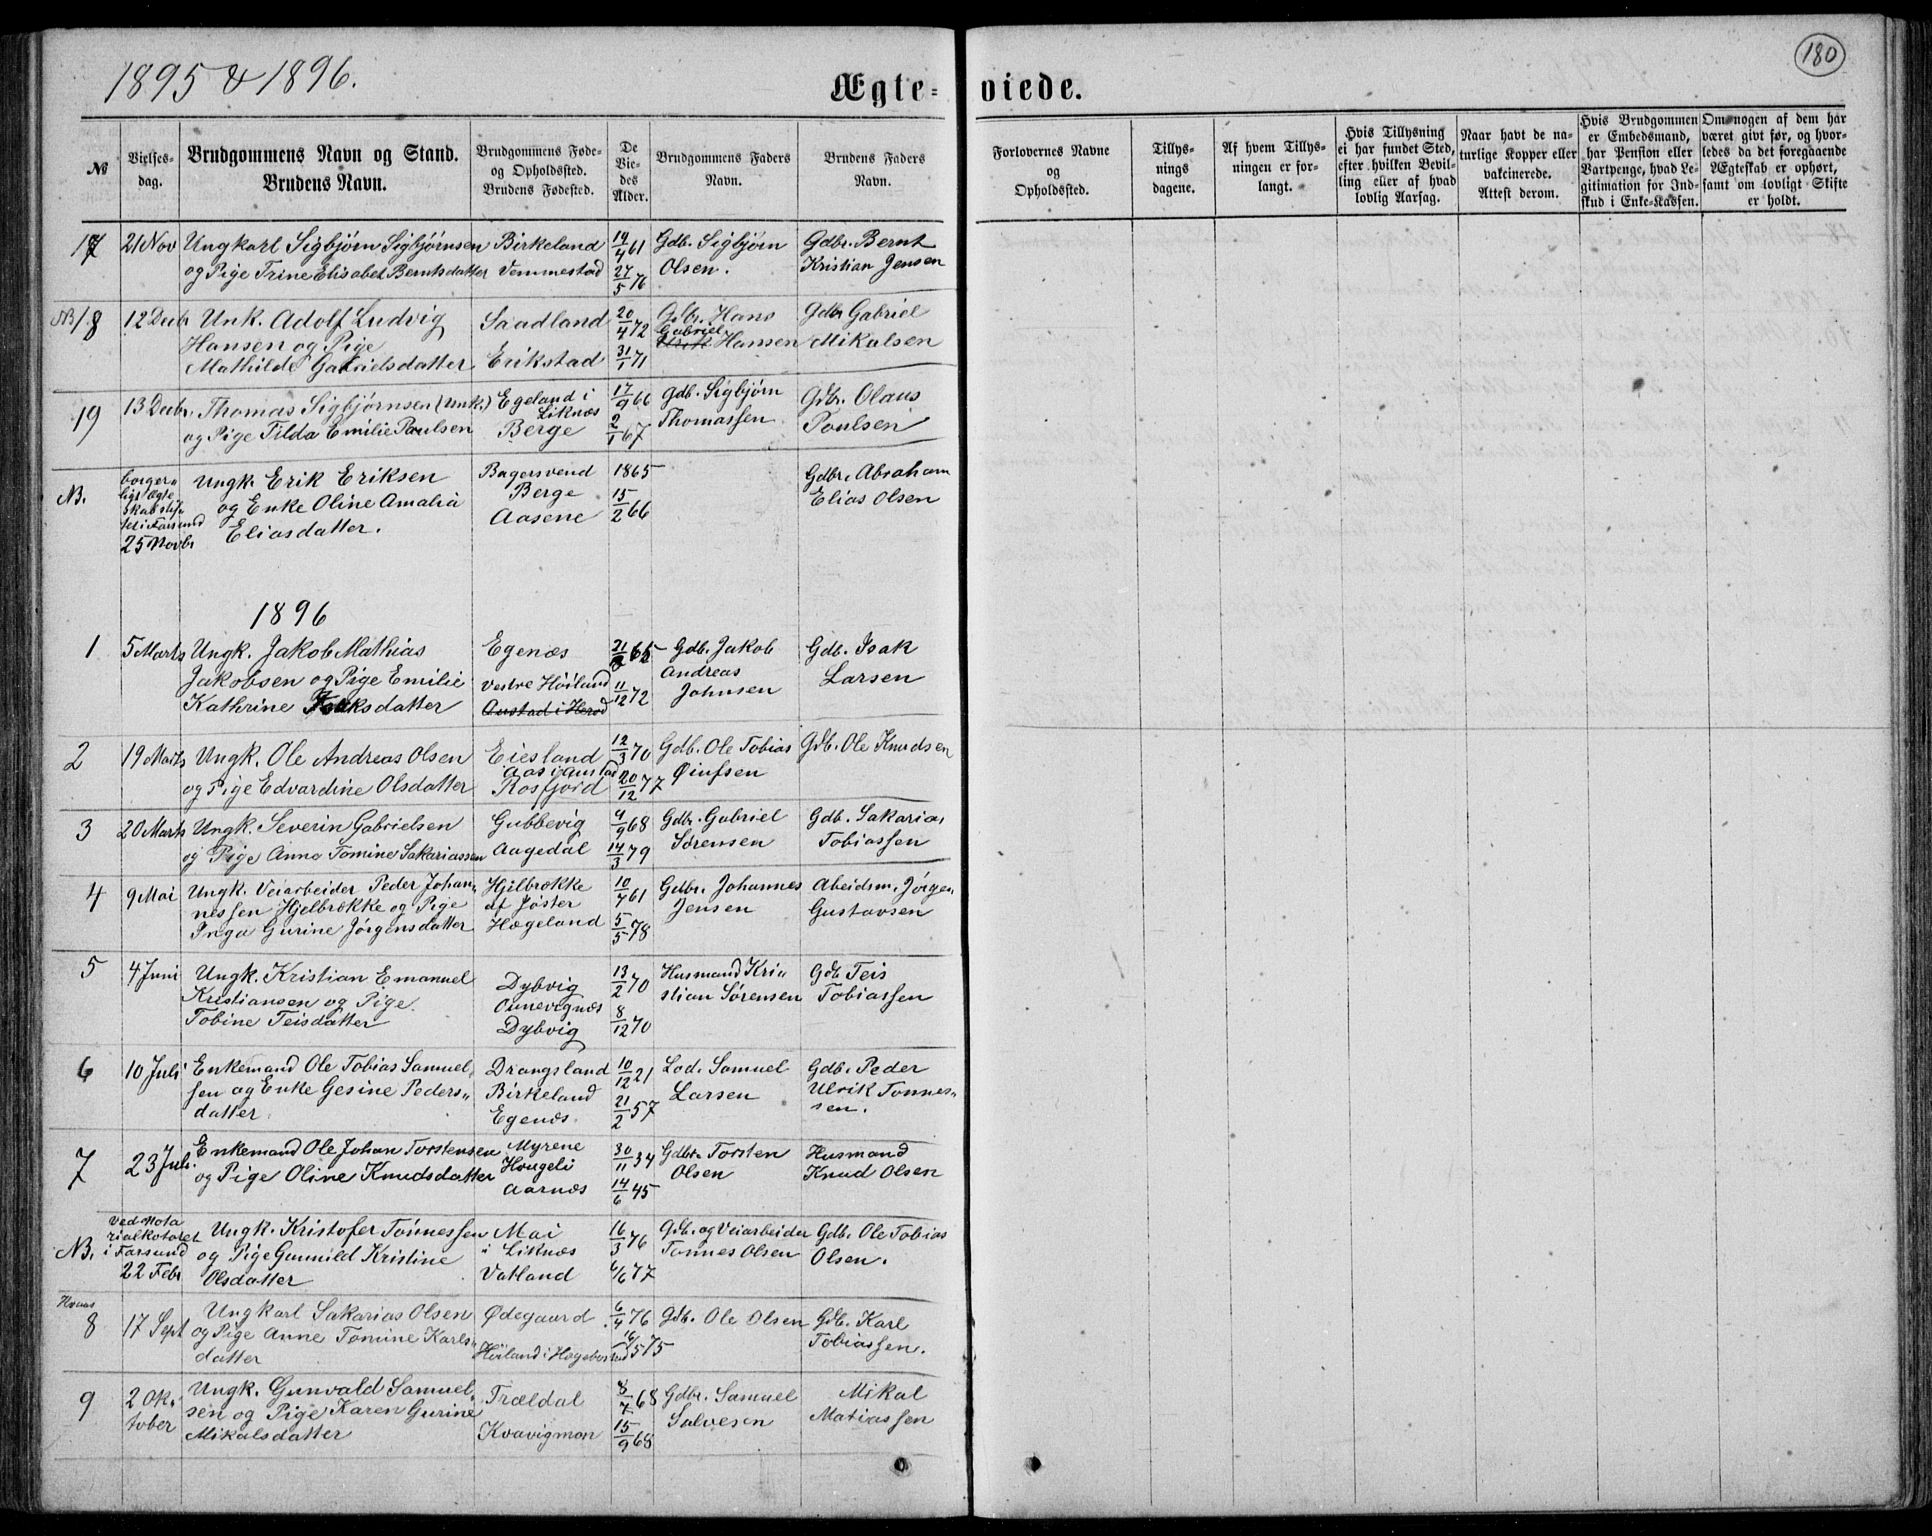 1895 & 1896.
Ægte-
viede.
180
№
Vielses-
dag.
Brudgommens Navn og Stand.
Brudens Navn.
Brudgommens Føde-
og Opholdssted.
Brudens Fødested.
De
Vie-
des
Alder.
Brudgommens Faders
Navn.
Brudens Faders
Navn.
Forlovernes Navne
og
Opholdssted.
Tillys-
nings
dagene.
Af hvem Tillys-
ningen er for-
langt.
Hvis Tillysning
ei har fundet Sted,
efter hvilken Bevil-
ling eller af hvad
lovlig Aarsag.
Naar havt de na-
turlige Kopper eller
vakcinerede.
Attest derom.
Hvis Brudgommen
er Embedsmand,
har Pension eller
Vartpenge, hvad Le-
gitimation for Ind-
skud i Enke-Kassen.
Om nogen af dem har
været givt før, og hvor-
ledes da det foregaaende
Ægteskab er ophørt,
samt om lovligt Skifte
er holdt.
17 21 Nov Ungkarl Sigbjørn Sigbjørnsen Birkeland 14/4 61 Gdb. Sigbjørn Gdbr. Bernt
og Pige Trine Elisabet Berntsdatter Vemmestad 27/5 76 Olsen. Kristian Jensen
NB 18 12 Decbr Unk. Adolf Ludvig Saadland 20/4 72 Gdbr. Hans Gdbr Gabriel
Hansen og Pige Gabriel Hansen Mikalsen
Mathilde Gabrielsdatter Erikstad 31/1 71
19 13 Decbr. Thomas Sigbjørnsen (Unk.) Egeland i 17/9 66 Gdb. Sigbjørn Gdbr. Olaus
Liknæs
og Pige Tilda Emilie Paulsen Berge 2/1 67 Thomassen Poulsen
NB. borger- Ungk. Erik Eriksen Bagersvend 1865 Gdbr. Abraham
ligt Ægte- og Enke Oline Amalia Berge 15/2 66 Elias Olsen
skab stif-
tet i Farsund Eliasdatter. Aasene
25 Novbr
1896
1 5 Marts Ungk. Jakob Mathias Egenæs 21/ 65 Gdb. Jakob Gdb. Isak
Jakobsen og Pige Emilie Vestre Höiland 11/12 72 Andreas Larsen
Kathrine Isaksdatter Austad i Herad Johnsen
2 19 Marts Ungk. Ole Andreas Olsen Eiesland 12/3 70 Gdb. Ole Tobias Gdb. Ole Knudsen
Aas i Austad
og Pige Edvardine Olsdatter Rosfjord 20/12 77 Øinfsen
3 20 Marts Ungk. Severin Gabrielsen Gubbevig 9/9 68 Gdbr. Gabriel Gdb. Sakarias
og Pige Anna Tomine Sakariassen Aagedal 14/3 79 Sørensen Tobiassen
4 9 Mai Ungk. Veiarbeider Peder Johan- Hjilbrække 10/4 61 Gdbr. Johannes Abeidsm. Jörgen
nessen Hjelbrække og Pige af Jøster Jensen Gustavsen
Inga Gurine Jørgensdatter Hægeland 5/5 78
5 4 Juni Ungk. Kristian Emanuel Dybvig 13/2 70 Husmand Kri- Gdb Teis
Kristiansen og Pige Ounevignæs stian Sørensen Tobiassen
Tobine Teisdatter Dybvig 8/12 70
6 10 Juli Enkemand Ole Tobias Samuel- Drangsland 10/12 21 Lod. Samuel Gdb. Peder
sen og Enke Gesine Peders- Birkeland 21/2 57 Larsen Ulrik Tønnes-
datter. Egenæs. sen.
7 23 Juli. Enkemand Ole Johan Torstensen Myrene 30/11 34 Gdbr. Torsten Husmand
og Pige Oline Knudsdatter Hougeli Olsen Knud Olsen
Aarnæs 14/6 45
NB. Ved Nota
rialkotoret Ungk. Kristofer Tönnessen Mai 16/3 76 Gdb. og Veiarbeider Gdb. Ole Tobias
i Farsund og Pige Gunnild Kristine i Liknæs Tönnes Olsen Olsen.
22 Febr Olsdatter Vatland 4/6 77
Kvaas
8 17 Sept Ungkarl Sakarias Olsen Ødegaard. 6/4 76 Gdb. Ole Olsen Gdb. Karl
og Pige Anne Tomine Karls- Höiland i Hægebostad 16/5 75 Tobiassen.
datter
9 2 Ok- Ungk. Gunvald Samuel- Trældal 8/7 68 Gdbr. Samuel Mikal
tober sen og Pige Karen Gurine Kvavigmon 15/9 68 Salvesen Matiassen
Mikalsdatter